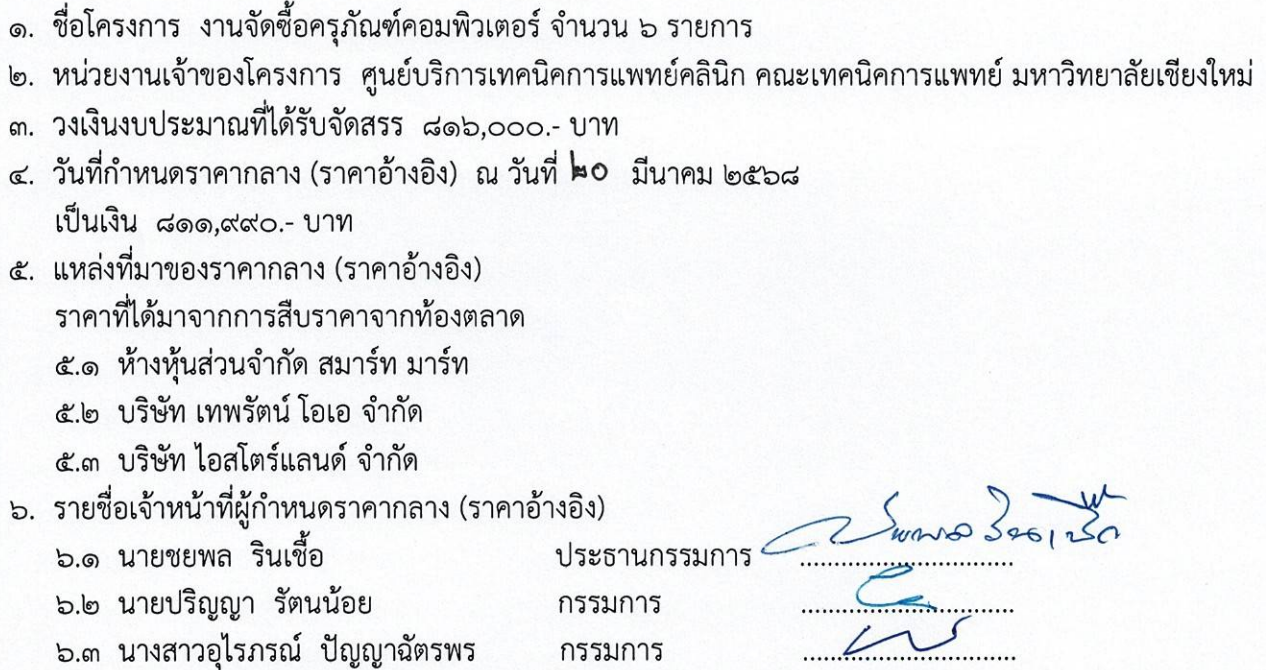 ๑. ชื่อโครงการ งานจัดซื้อครุภัณฑ์คอมพิวเตอร์ จำนวน ๖ รายการ
๒. หน่วยงานเจ้าของโครงการ ศูนย์บริการเทคนิคการแพทย์คลินิก คณะเทคนิคการแพทย์ มหาวิทยาลัยเชียงใหม่
๓. วงเงินงบประมาณที่ได้รับจัดสรร ๘๑๖,๐๐๐.- บาท
๔. วันที่กำหนดราคากลาง (ราคาอ้างอิง) ณ วันที่ ๒๐ มีนาคม ๒๕๖๘
เป็นเงิน ๘๑๑,๙๙๐.- บาท
๕. แหล่งที่มาของราคากลาง (ราคาอ้างอิง)
ราคาที่ได้มาจากการสืบราคาจากท้องตลาด
๕.๑ ห้างหุ้นส่วนจำกัด สมาร์ท มาร์ท
๕.๒ บริษัท เทพรัตน์ โอเอ จำกัด
๕.๓ บริษัท ไอสโตร์แลนด์ จำกัด
๖. รายชื่อเจ้าหน้าที่ผู้กำหนดราคากลาง (ราคาอ้างอิง)
๖.๑ นายชยพล รินเชื้อ ประธานกรรมการ ..............................
๖.๒ นายปริญญา รัตนน้อย กรรมการ ..............................
๖.๓ นางสาวอุไรภรณ์ ปัญญาฉัตรพร กรรมการ ..............................